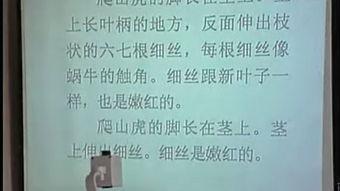 爬山虎的脚长在茎上。茎
上长叶柄的地方，反面伸出枝
状的六七根细丝，每根细丝像
蜗牛的触角。细丝跟新叶子一
样，也是嫩红的。
爬山虎的脚长在茎上。茎
上伸出细丝。细丝是嫩红的。